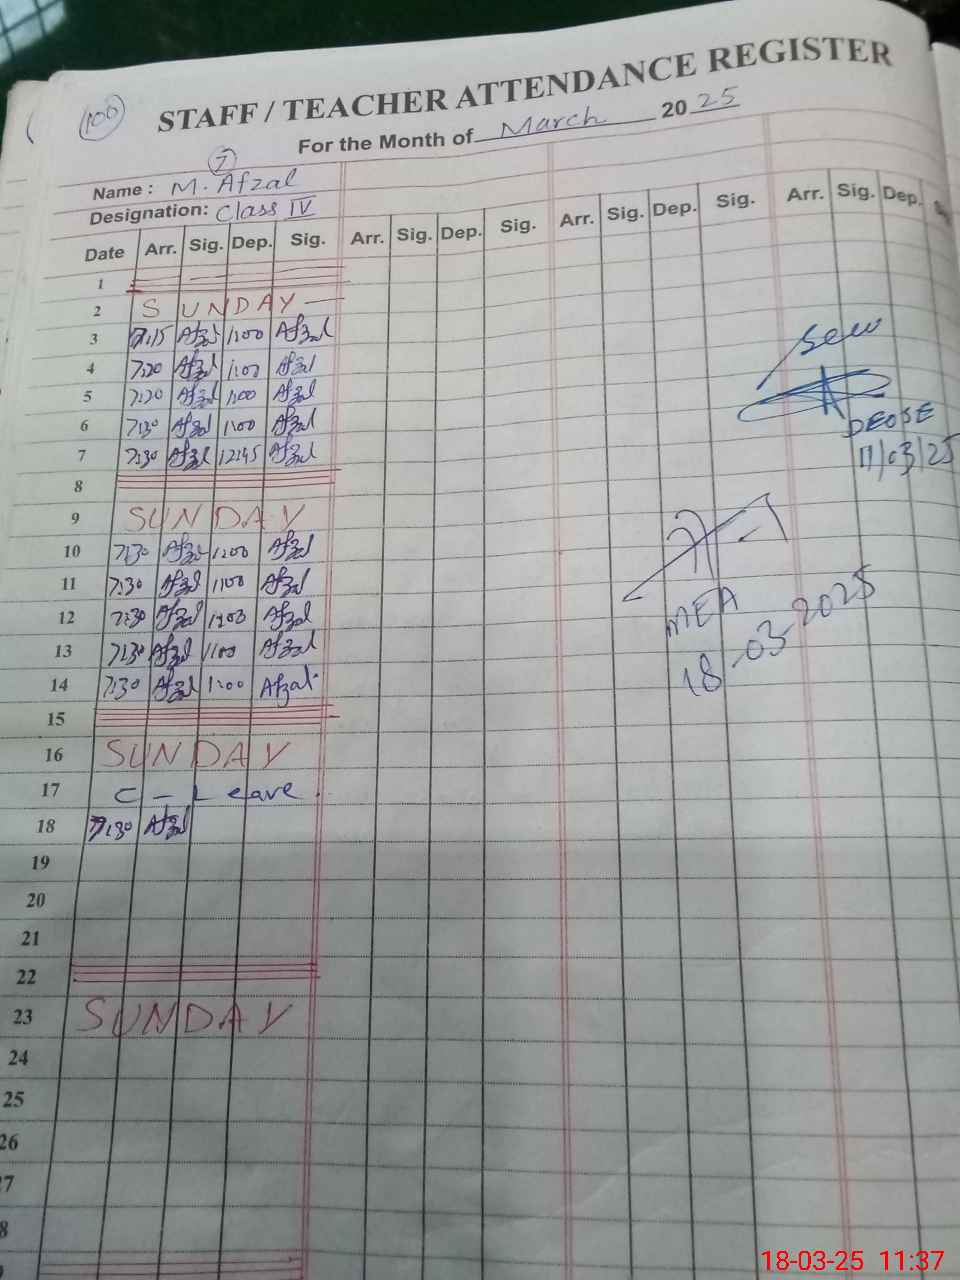 100
STAFF / TEACHER ATTENDANCE REGISTER
For the Month of March 2025
7
Name : M. Afzal
Designation: Class IV
Date Arr. Sig. Dep. Sig. Arr. Sig. Dep. Sig. Arr. Sig. Dep. Sig. Arr. Sig. Dep.
1
2 SUNDAY
3 7:15 Afzal 1:00 Afzal
4 7:20 Afzal 1:00 Afzal
5 7:20 Afzal 1:00 Afzal
6 7:30 Afzal 1:00 Afzal
7 7:30 Afzal 12:45 Afzal
8
9 SUNDAY
10 7:30 Afzal 1:00 Afzal
11 7:30 Afzal 1:00 Afzal
12 7:30 Afzal Afzal
13 7:30 Afzal 1:00 Afzal
14 7:30 Afzal 1:00 Afzal
15
16 SUNDAY
17 C - Leave
18 7:30 Afzal
19
20
21
22
23 SUNDAY
24
25
26
7
8
Seen
DEOSE
11/03/25
MEA
18-03-2025
18-03-25 11:37